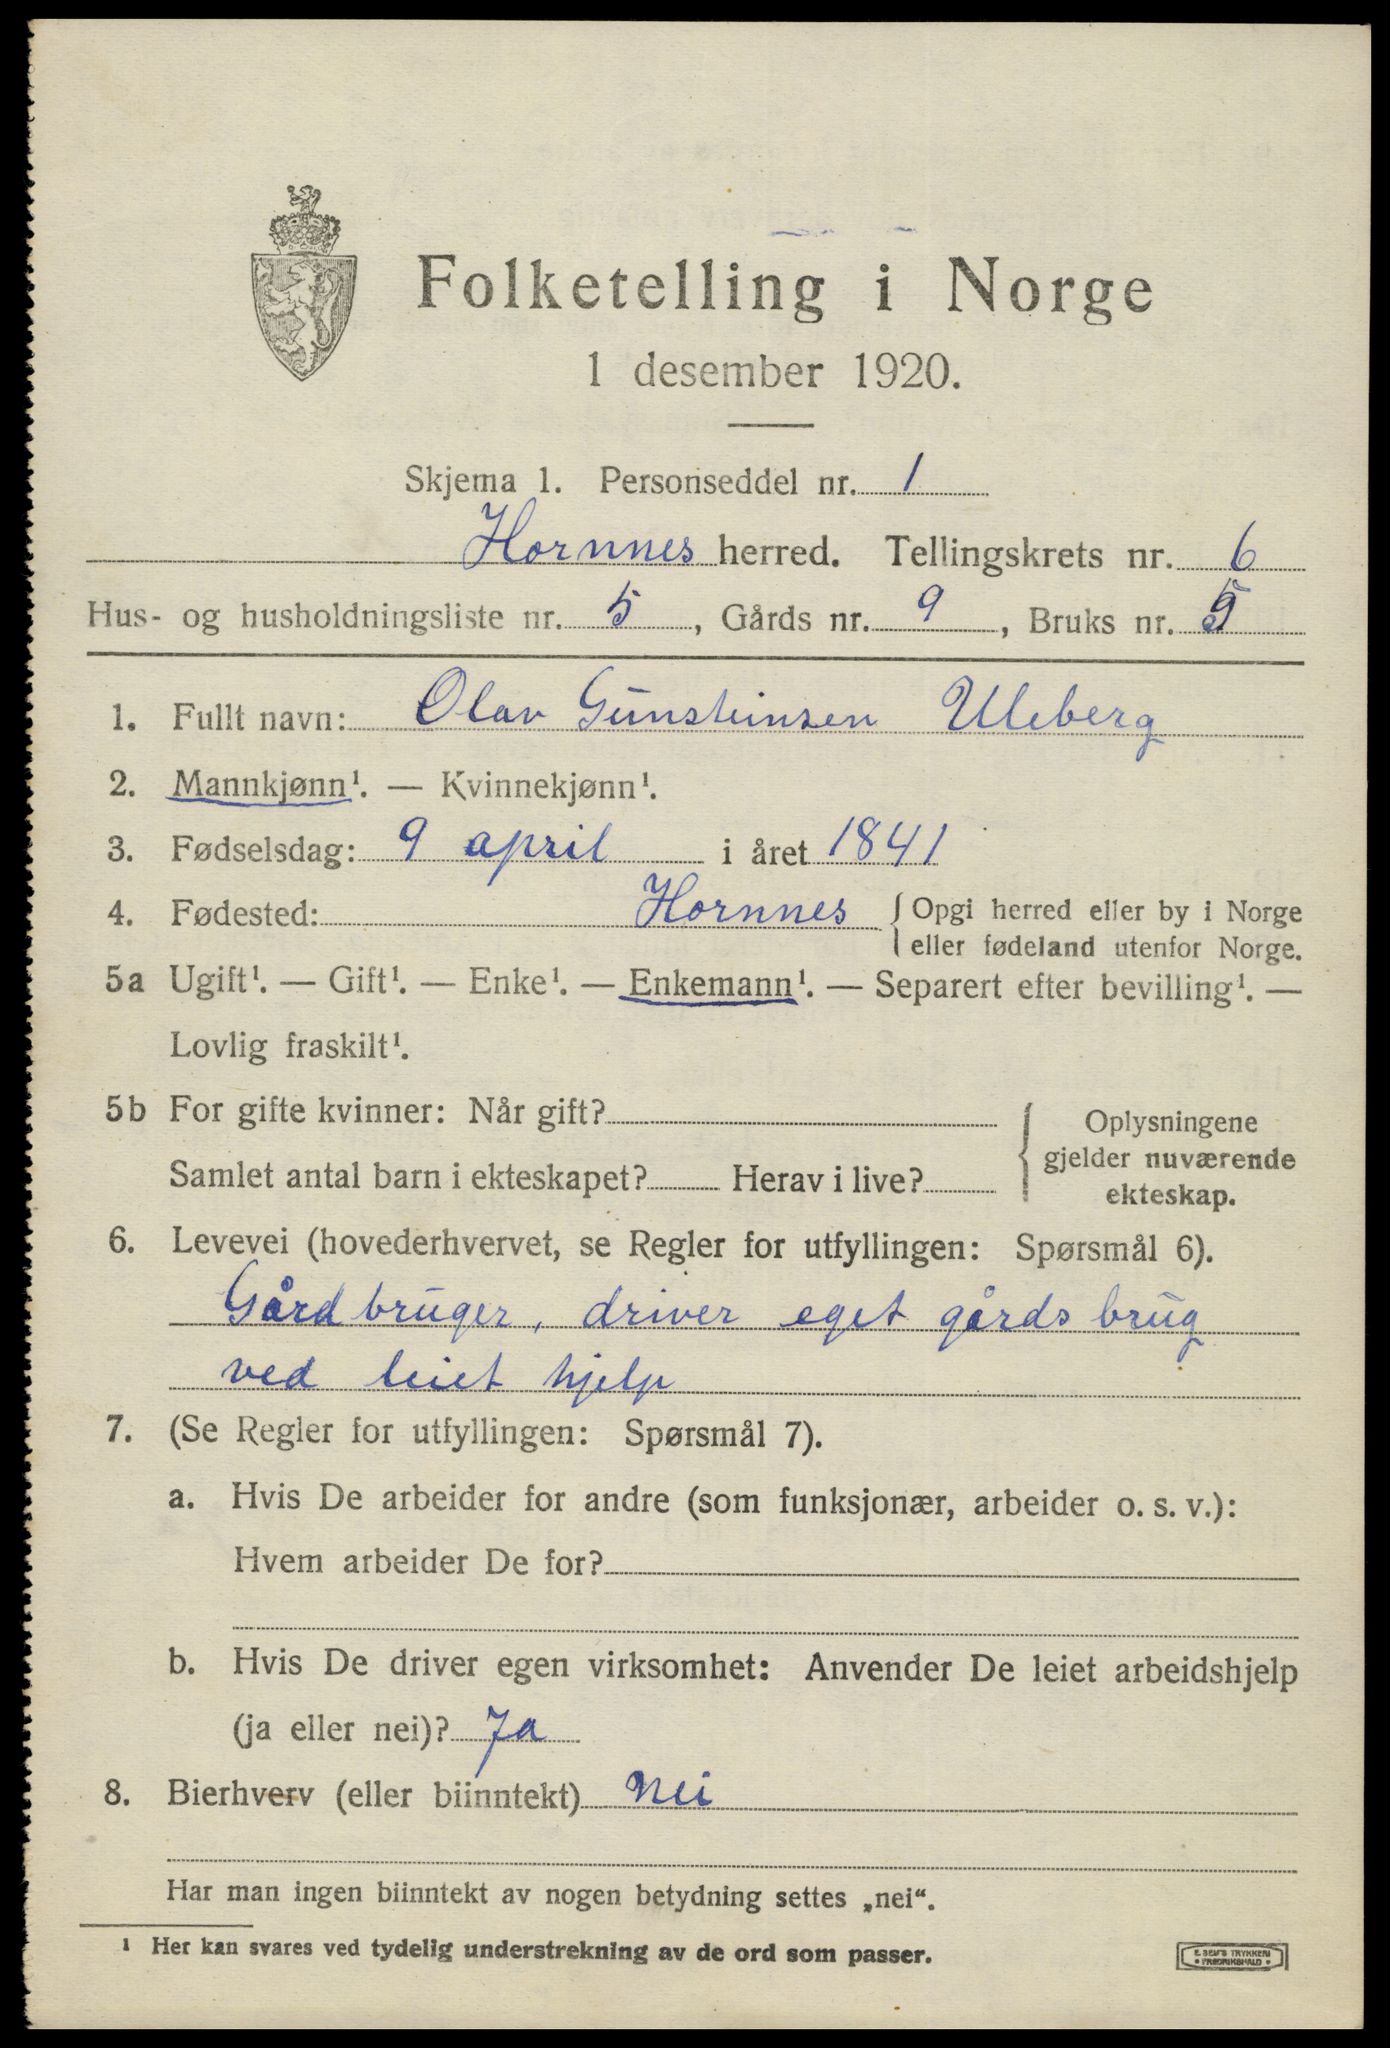 Folketelling i Norge
1 desember 1920.
Skjema 1. Personseddel nr. 1
Hornnes herred. Tellingskrets nr. 6
Hus- og husholdningsliste nr. 5, Gårds nr. 9, Bruks nr.
1. Fullt navn: Olav Gunsteinsen Uleberg
2. Mannkjønn¹. — Kvinnekjønn¹.
3. Fødselsdag: 9 april i året 1841
4. Fødested: Hornnes { Opgi herred eller by i Norge
eller fødeland utenfor Norge.
5a Ugift¹. — Gift¹. — Enke¹. — Enkemann¹. — Separert efter bevilling¹. —
Lovlig fraskilt¹.
5b For gifte kvinner: Når gift?
Samlet antal barn i ekteskapet? Herav i live?
{ Oplysningene
gjelder nuværende
ekteskap.
6. Levevei (hovederhvervet, se Regler for utfyllingen: Spørsmål 6).
Gårdbruger, driver eget gårdsbrug
ved leiet hjelp
7. (Se Regler for utfyllingen: Spørsmål 7).
a. Hvis De arbeider for andre (som funksjonær, arbeider o. s. v.):
Hvem arbeider De for?
b. Hvis De driver egen virksomhet: Anvender De leiet arbeidshjelp
(ja eller nei)? Ja
8. Bierhverv (eller biinntekt) nei
Har man ingen biinntekt av nogen betydning settes „nei“.
¹ Her kan svares ved tydelig understrekning av de ord som passer.
E. SEM'S TRYKKERI
* FREDRIKSHALD *